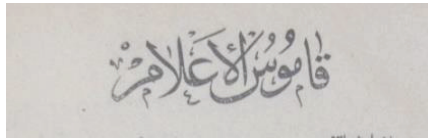 قاموس الأعلام